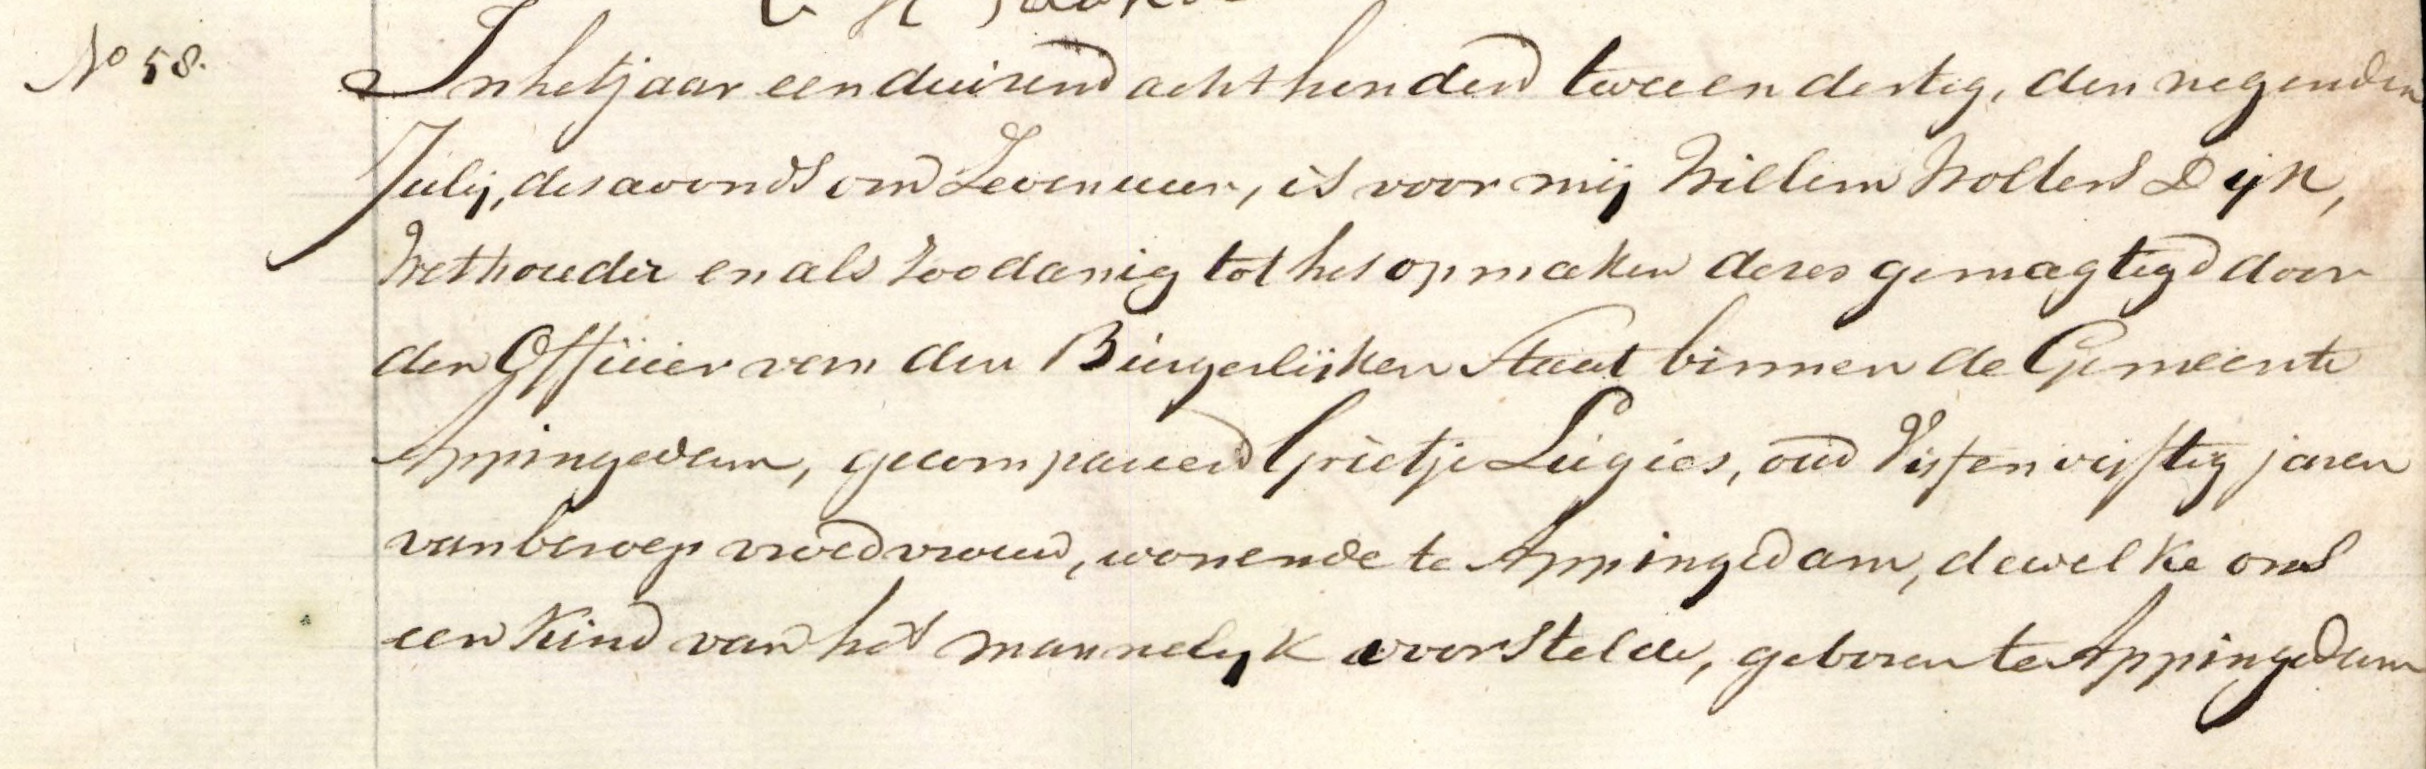 No 58.
In het jaar een duizend acht honderd twee en dertig, den negenden
Julij, des avonds om Zeven uur, is voor mij Willem Wolters Dijk,
Wethouder en als zoodanig tot het opmaken dezes gemagtigd door
den Officier van den Burgerlijken Staat binnen de Gemeente
Appingedam, gecompareerd Grietje Lugies, oud Vijf en vijftig jaren
van beroep vroedvrouw, wonende te Appingedam, dewelke ons
een Kind van het mannelijk voorstelde, geboren te Appingedam